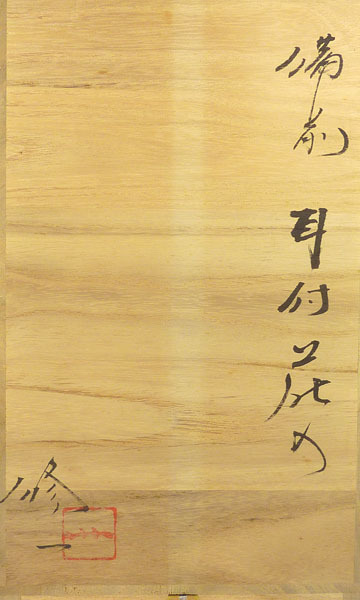 備前 耳付花入
修一